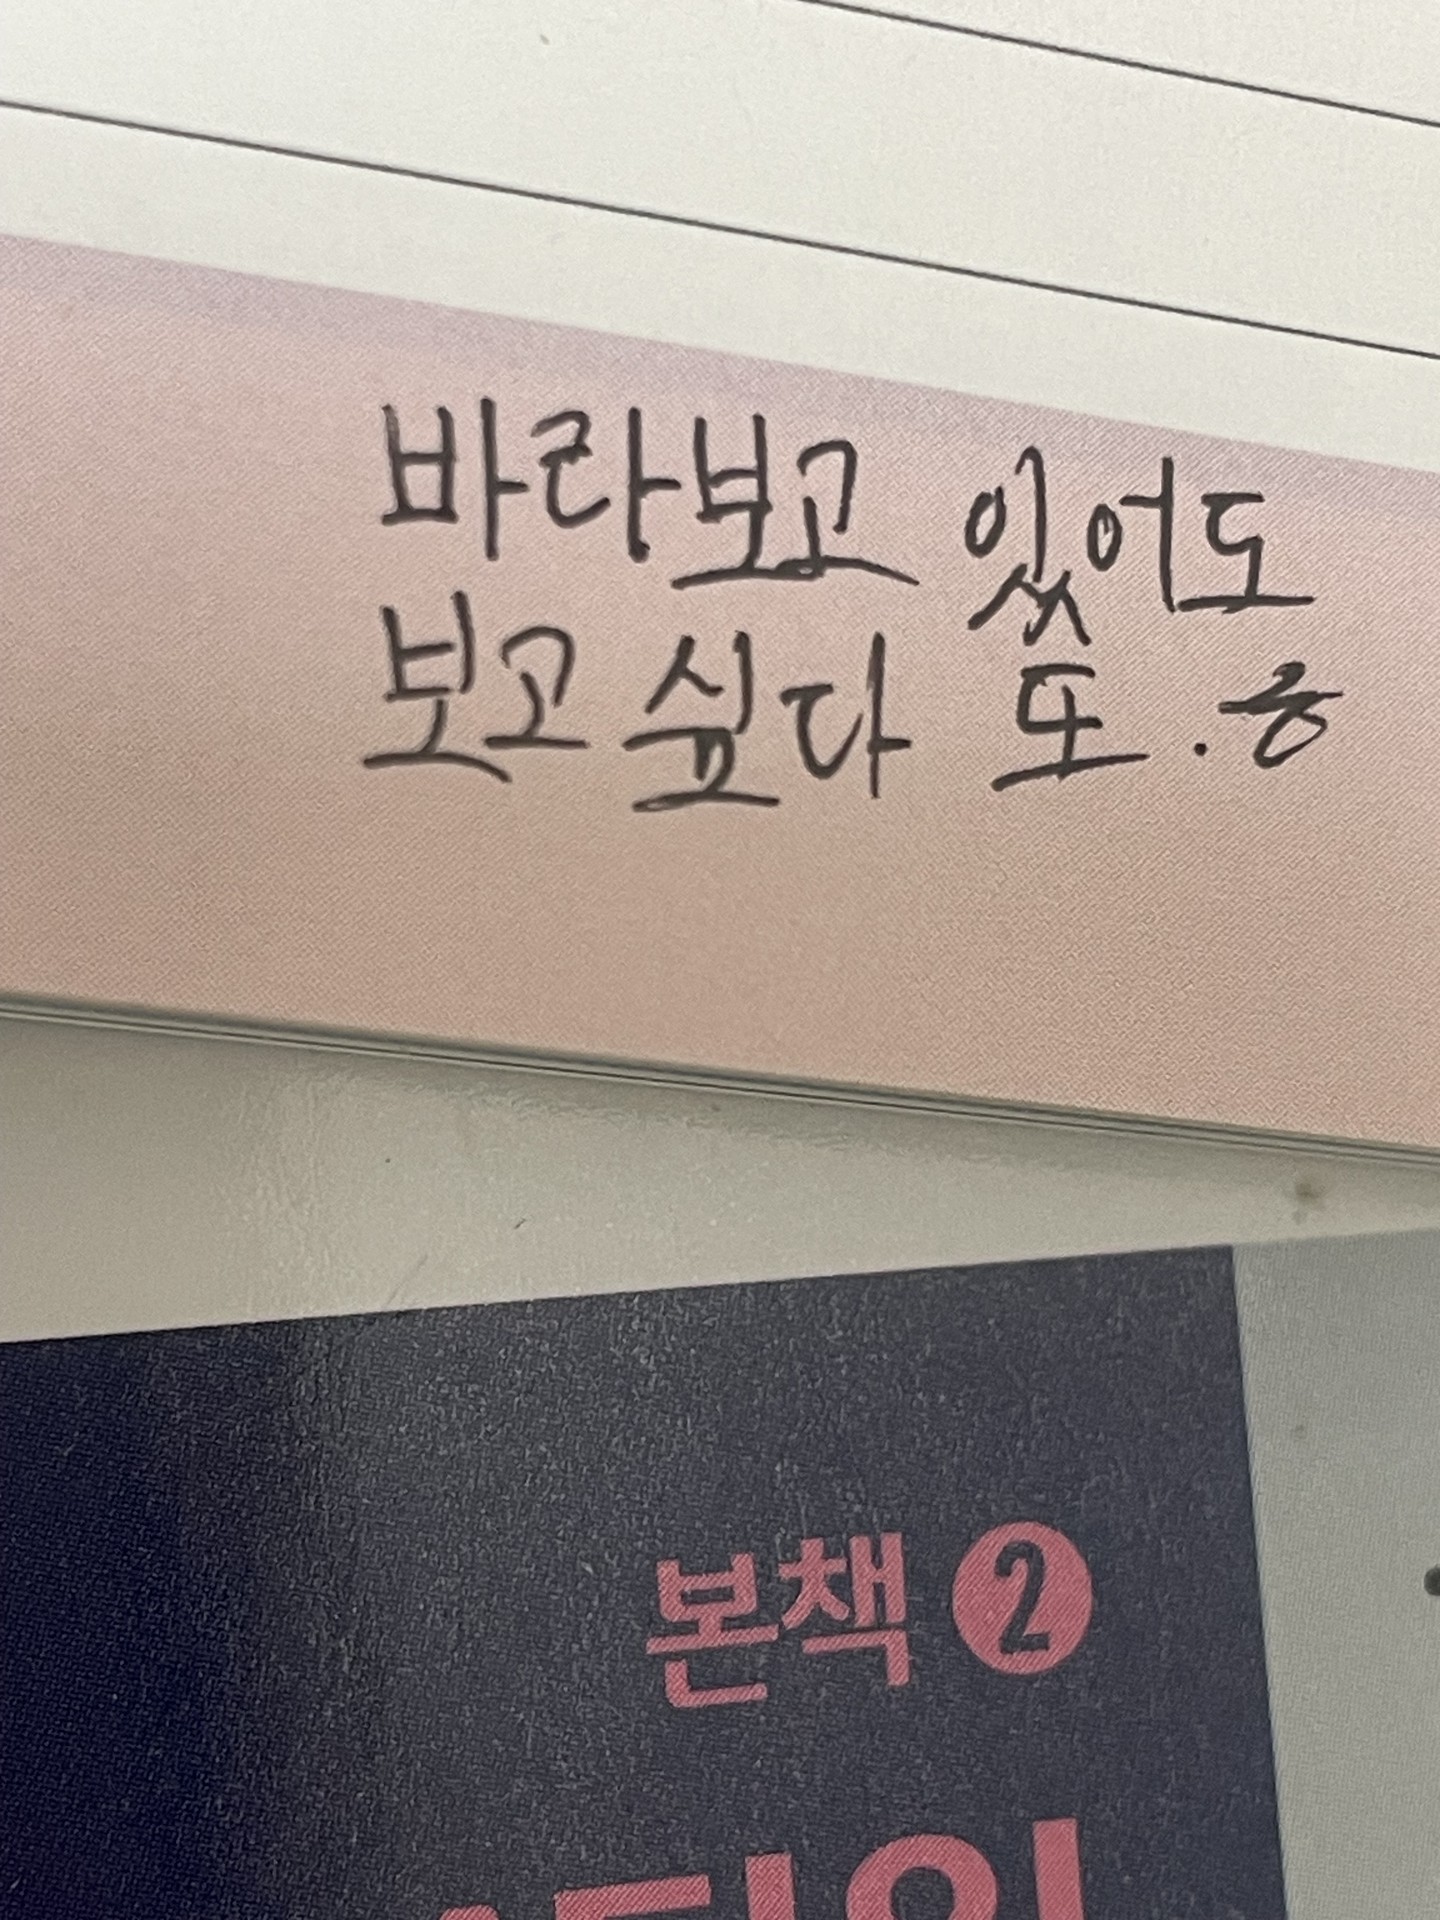 바라보고 있어도
보고싶다 또.
본책 2